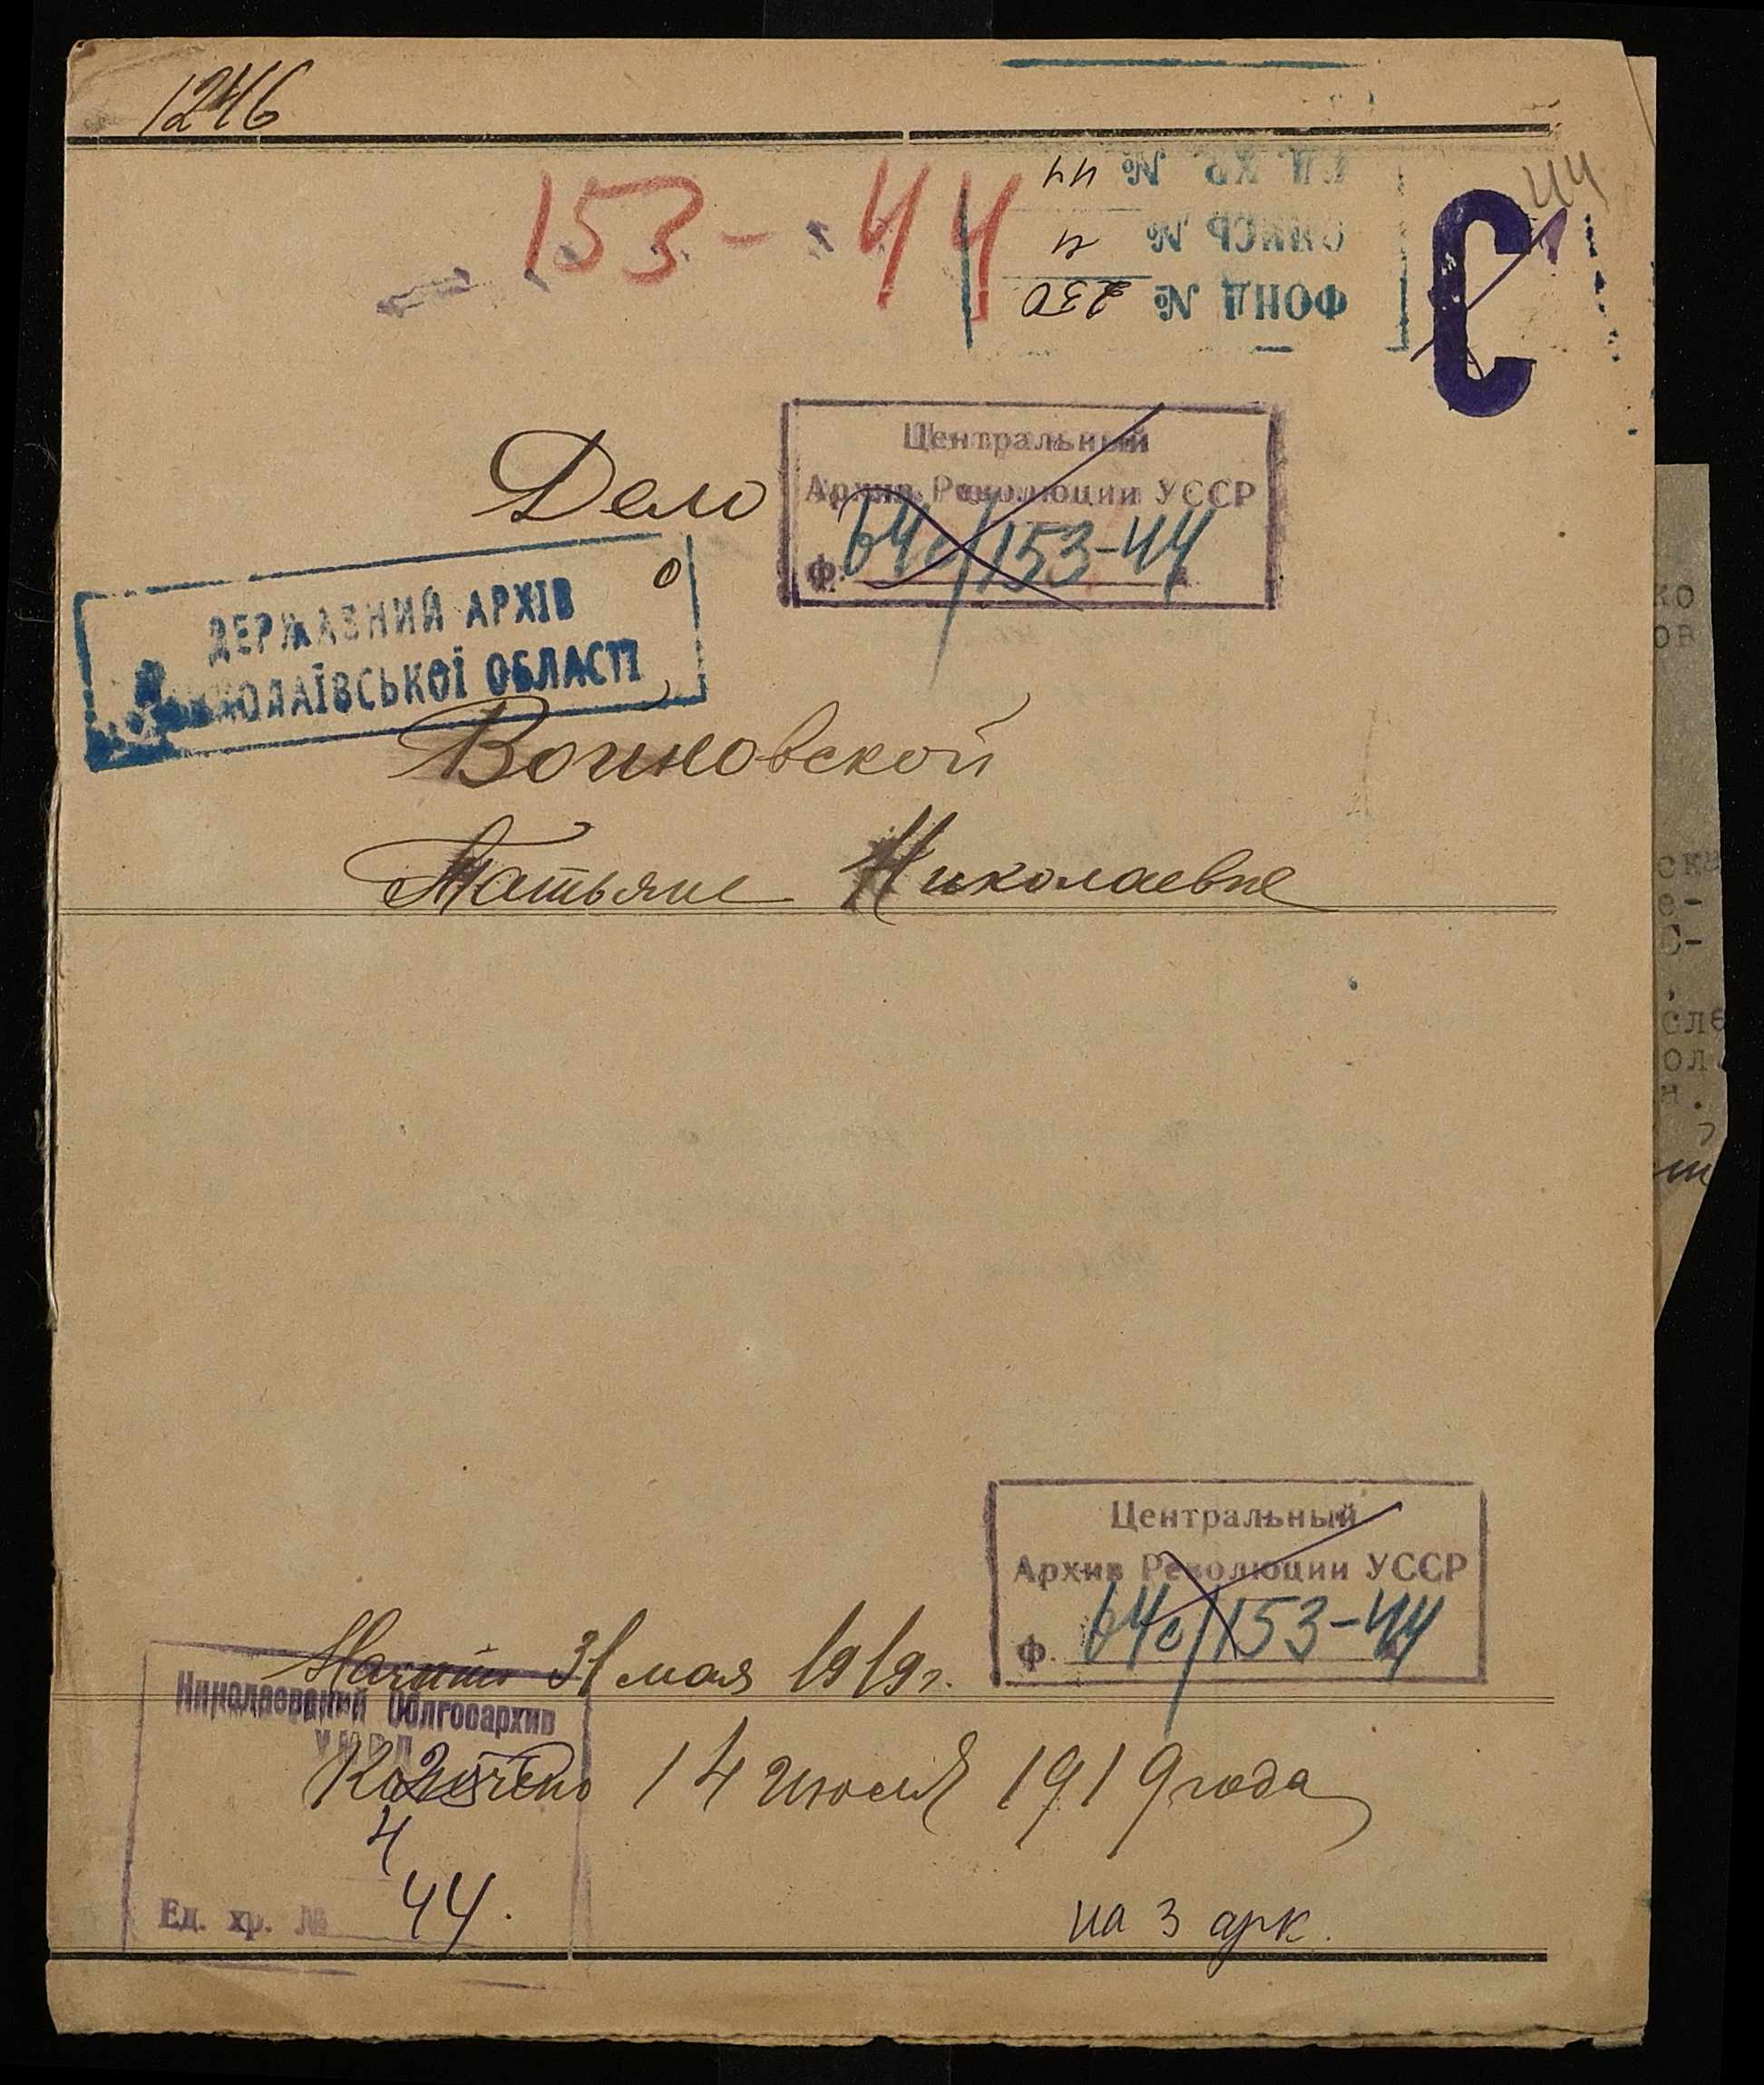 1246
153-44
44
ЕД. ХР. № 44
ОПИСЬ № 4
ФОНД № 230
С
Центральный
Архив Революции УССР
Ф. 64с/153-44
Дело
о
ДЕРЖАВНИЙ АРХІВ
МИКОЛАЇВСЬКОЇ ОБЛАСТІ
Воиновской
Татьяне Николаевне
ко
ов
ска
е-
С-
,
сле
ол
н.
Центральный
Архив Революции УССР
Ф. 64с/153-44
Начато 31 мая 1919 г.
Николаевский Облгосархив
УМВД
Кончено 14 июля 1919 года
4
Ед. хр. № 44.
на 3 арк.